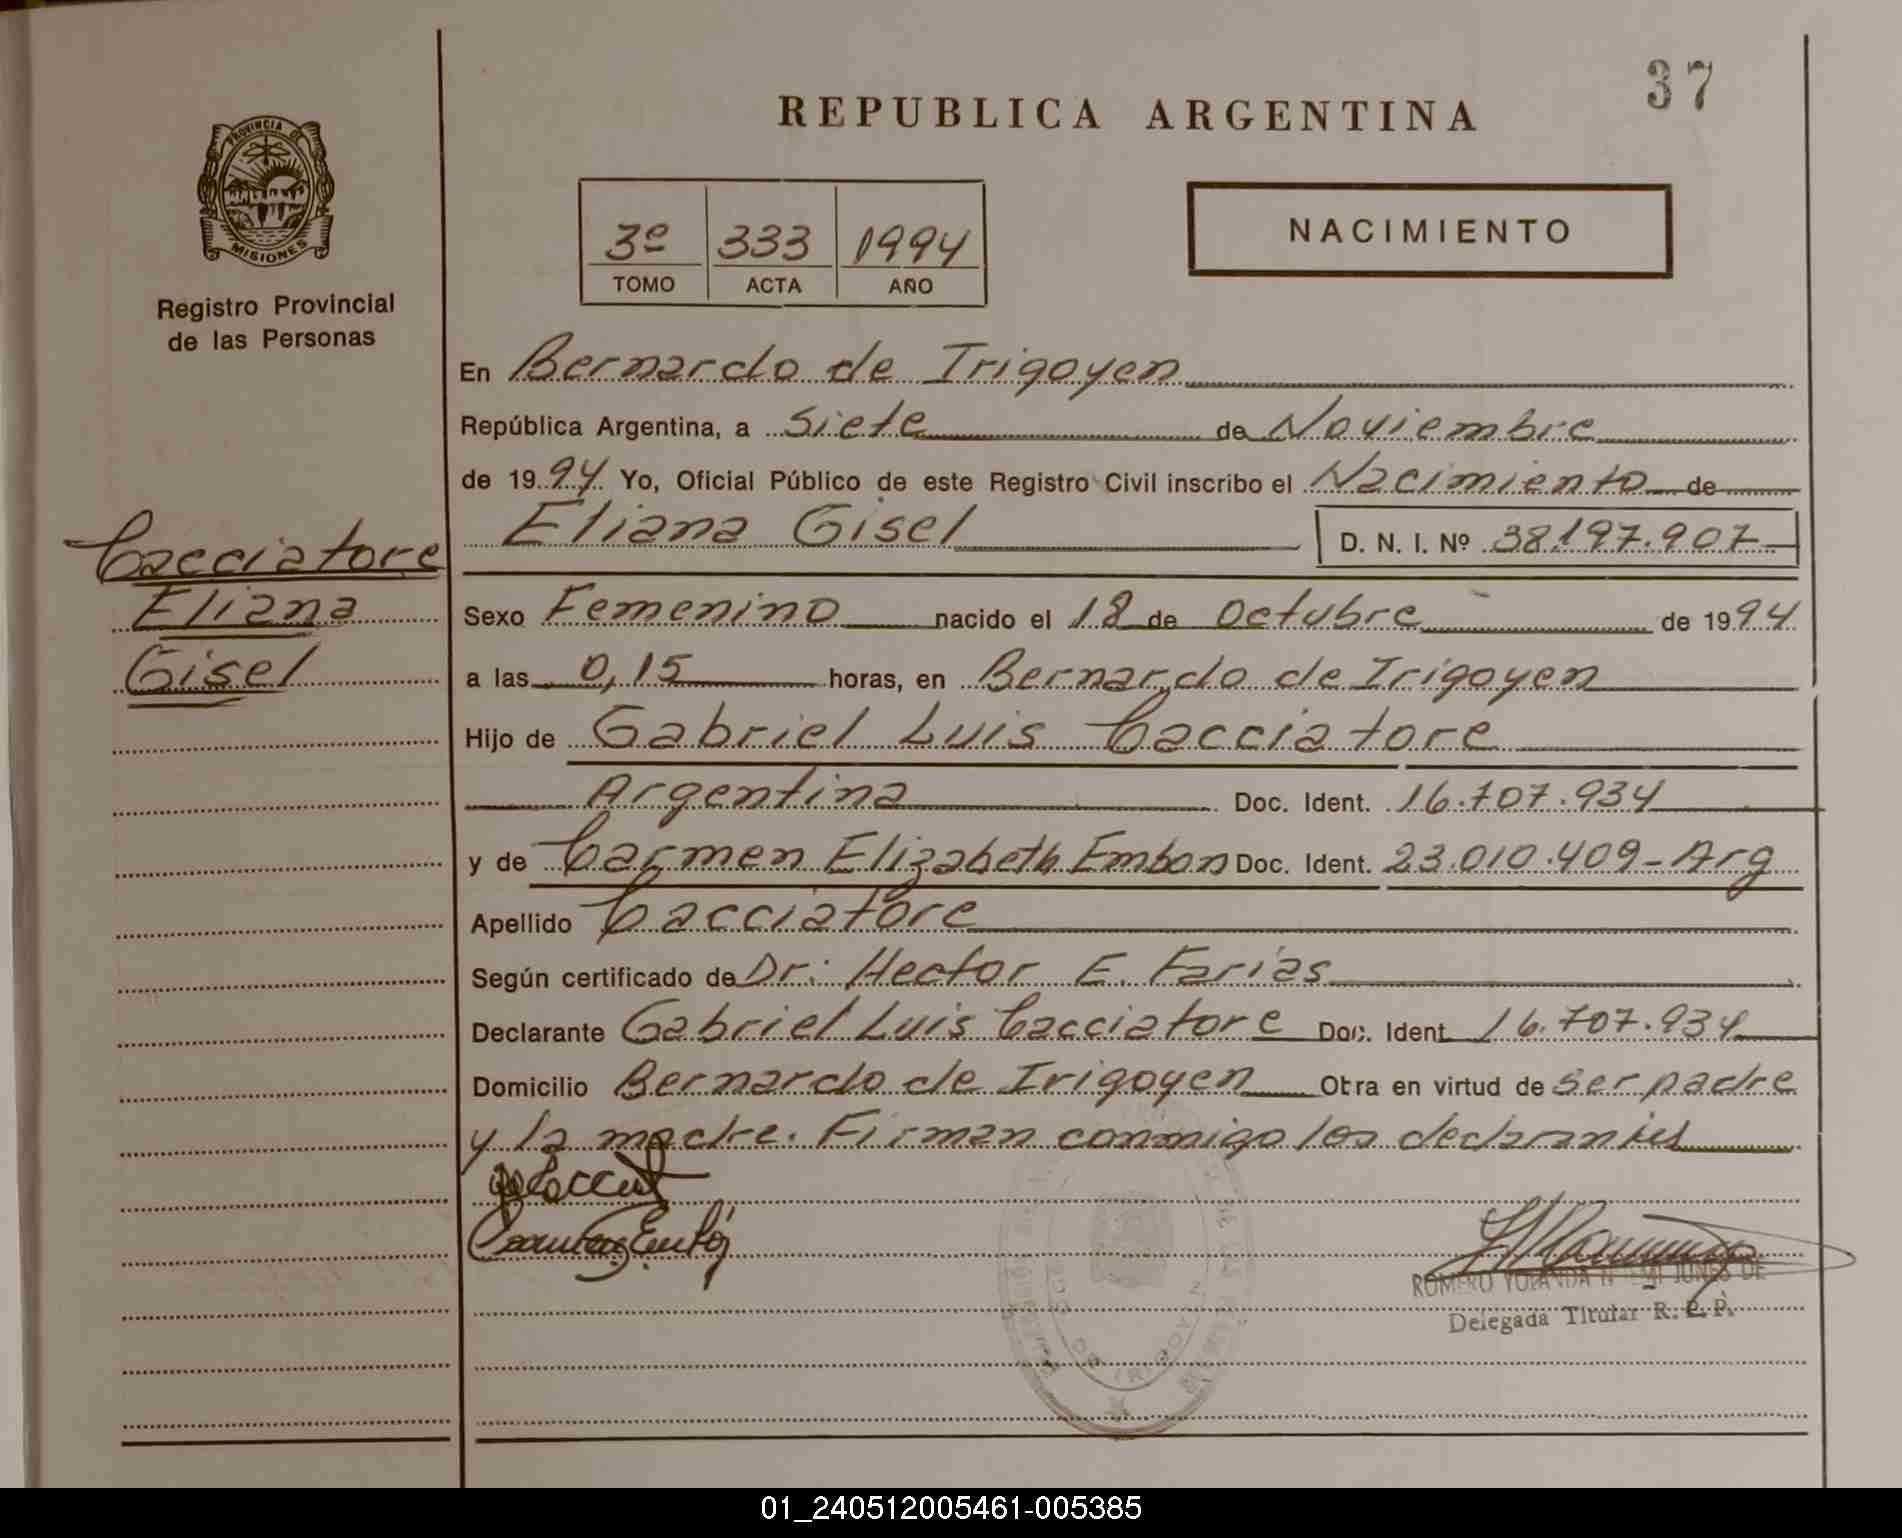 37
REPUBLICA ARGENTINA
PROVINCIA DE
MISIONES
Registro Provincial
de las Personas
3º 333 1994
TOMO ACTA AÑO
NACIMIENTO
En Bernardo de Irigoyen
República Argentina, a siete de Noviembre
de 1994 Yo, Oficial Público de este Registro Civil inscribo el Nacimiento de
Eliana Gisel D. N. I. Nº 38.197.907
Cacciatore
Eliana
Gisel
Sexo Femenino nacido el 18 de Octubre de 1994
a las 0,15 horas, en Bernardo de Irigoyen
Hijo de Gabriel Luis Cacciatore
Argentina Doc. Ident. 16.707.934
y de Carmen Elizabeth Embon Doc. Ident. 23.010.409-Arg
Apellido Cacciatore
Según certificado de Dr: Hector E. Farías
Declarante Gabriel Luis Cacciatore Doc. Ident 16.707.934
Domicilio Bernardo de Irigoyen Otra en virtud de ser padre
y la madre. Firman conmigo los declarantes
ROMERO YOLANDA DE
Delegada Titular R. P.
DE IRIGOYEN
01_240512005461-005385